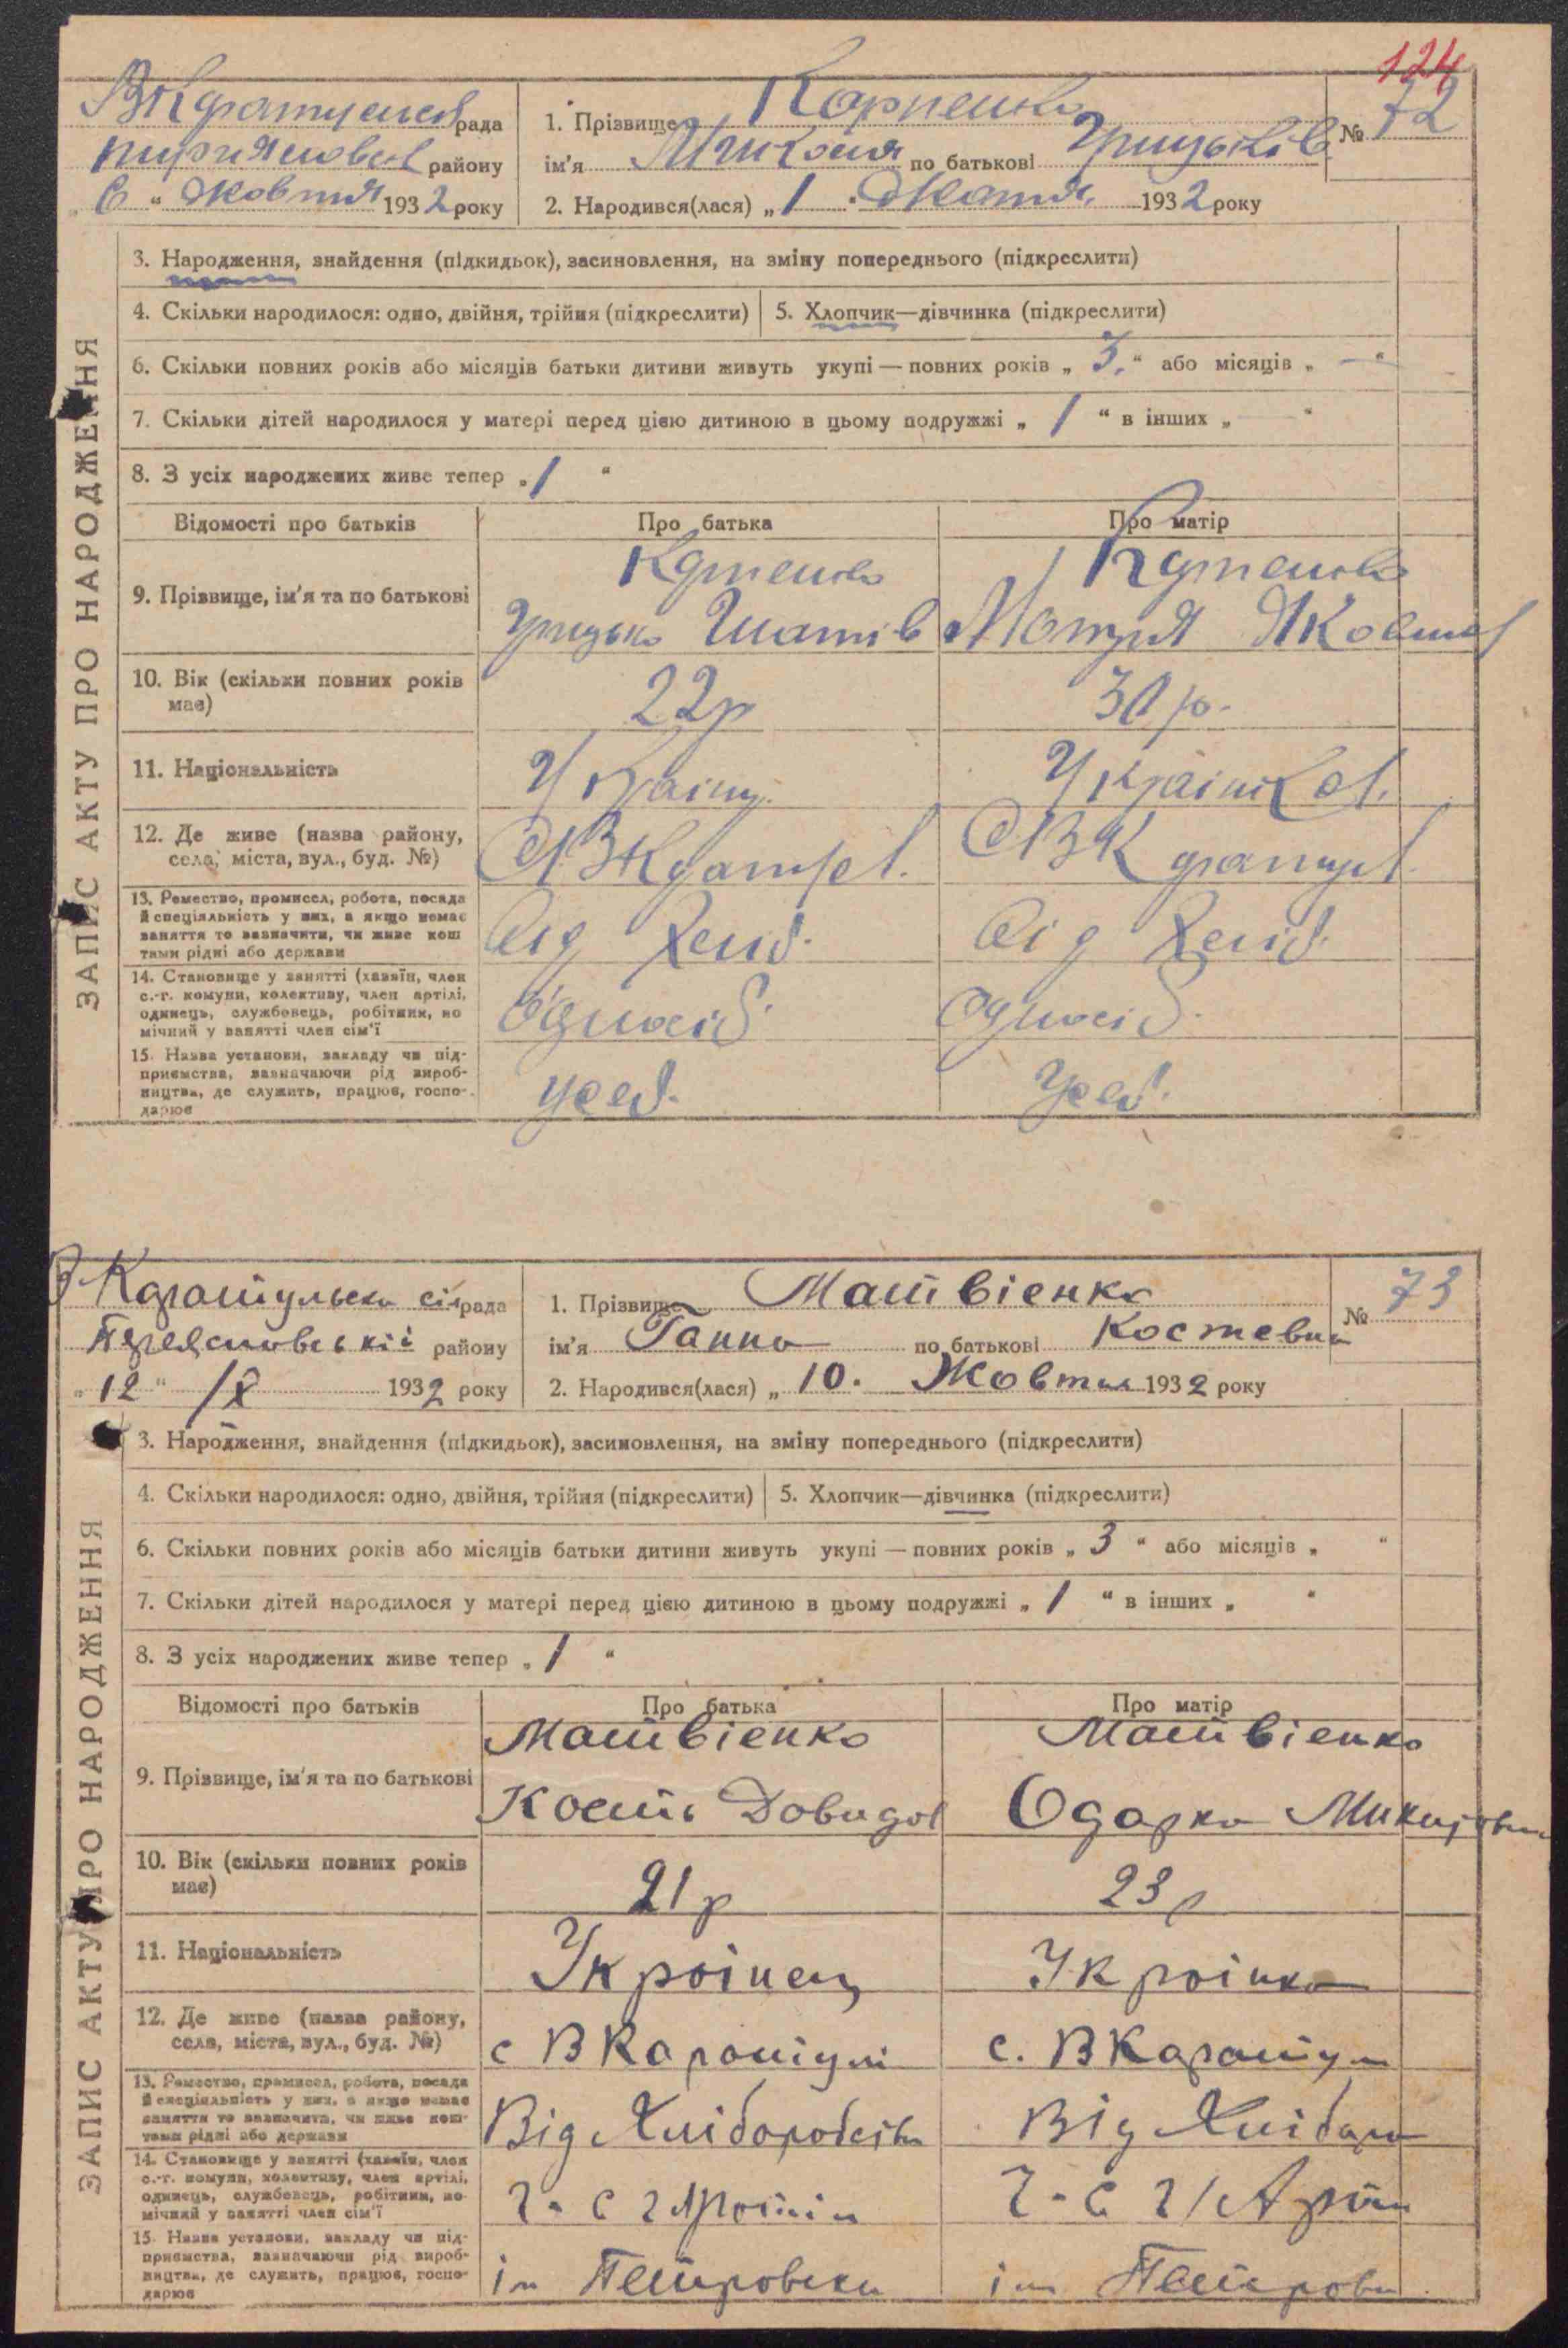 124
рада 1. Прізвище Карпенко № 72
району ім'я Микола по батькові Грицьків
„ 6 “ Жовтня 1932 року 2. Народився(лася) „ 1 “ 1932 року
ЗАПИС АКТУ ПРО НАРОДЖЕННЯ
3. Народження, знайдення (підкидьок), засиновлення, на зміну попереднього (підкреслити)
4. Скільки народилося: одно, двійня, трійня (підкреслити) 5. Хлопчик—дівчинка (підкреслити)
6. Скільки повних років або місяців батьки дитини живуть укупі — повних років „ 3. “ або місяців „ — “
7. Скільки дітей народилося у матері перед цією дитиною в цьому подружжі „ 1 “ в інших „ — “
8. З усіх народжених живе тепер „ 1 “
Відомості про батьків Про батька Про матір
9. Прізвище, ім'я та по батькові
Грицько Мотря
10. Вік (скільки повних років має) 22р 30р.
11. Національність Україн. Українка
12. Де живе (назва району, села, міста, вул., буд. №)
13. Ремество, промисел, робота, посада й спеціяльність у них, а якщо немає заняття то зазначити, чи живе коштами рідні або держави Від Хліб. Від Хліб.
14. Становище у занятті (хазяїн, член с.-г. комуни, колективу, член артілі, одинець, службовець, робітник, помічний у занятті член сім'ї Одноосіб. Одноосіб.
15. Назва установи, закладу чи підприємства, зазначаючи рід виробництва, де служить, працює, господарює
В Каратульська сільрада 1. Прізвище Матвієнко № 73
району ім'я Ганна по батькові Костевна
„ 12 “ /X 1932 року 2. Народився(лася) „ 10. Жовтня 1932 року
ЗАПИС АКТУ ПРО НАРОДЖЕННЯ
3. Народження, знайдення (підкидьок), засиновлення, на зміну попереднього (підкреслити)
4. Скільки народилося: одно, двійня, трійня (підкреслити) 5. Хлопчик—дівчинка (підкреслити)
6. Скільки повних років або місяців батьки дитини живуть укупі — повних років „ 3 “ або місяців „ “
7. Скільки дітей народилося у матері перед цією дитиною в цьому подружжі „ 1 “ в інших „ “
8. З усіх народжених живе тепер „ 1 “
Відомості про батьків Про батька Про матір
Матвієнко Матвієнко
9. Прізвище, ім'я та по батькові
Кость Давидов Одарка
10. Вік (скільки повних років має) 21р 23р
11. Національність Українец Українка
12. Де живе (назва району, села, міста, вул., буд. №) с В Каратулі с. В Каратул
13. Ремество, промисел, робота, посада й спеціяльність у них, а якщо немає заняття то зазначити, чи живе коштами рідні або держави Від Хліборобства Від Хлібороб
14. Становище у занятті (хазяїн, член с.-г. комуни, колективу, член артілі, одинець, службовець, робітник, помічний у занятті член сім'ї
15. Назва установи, закладу чи підприємства, зазначаючи рід виробництва, де служить, працює, господарює ім Петровськ ім Петровс